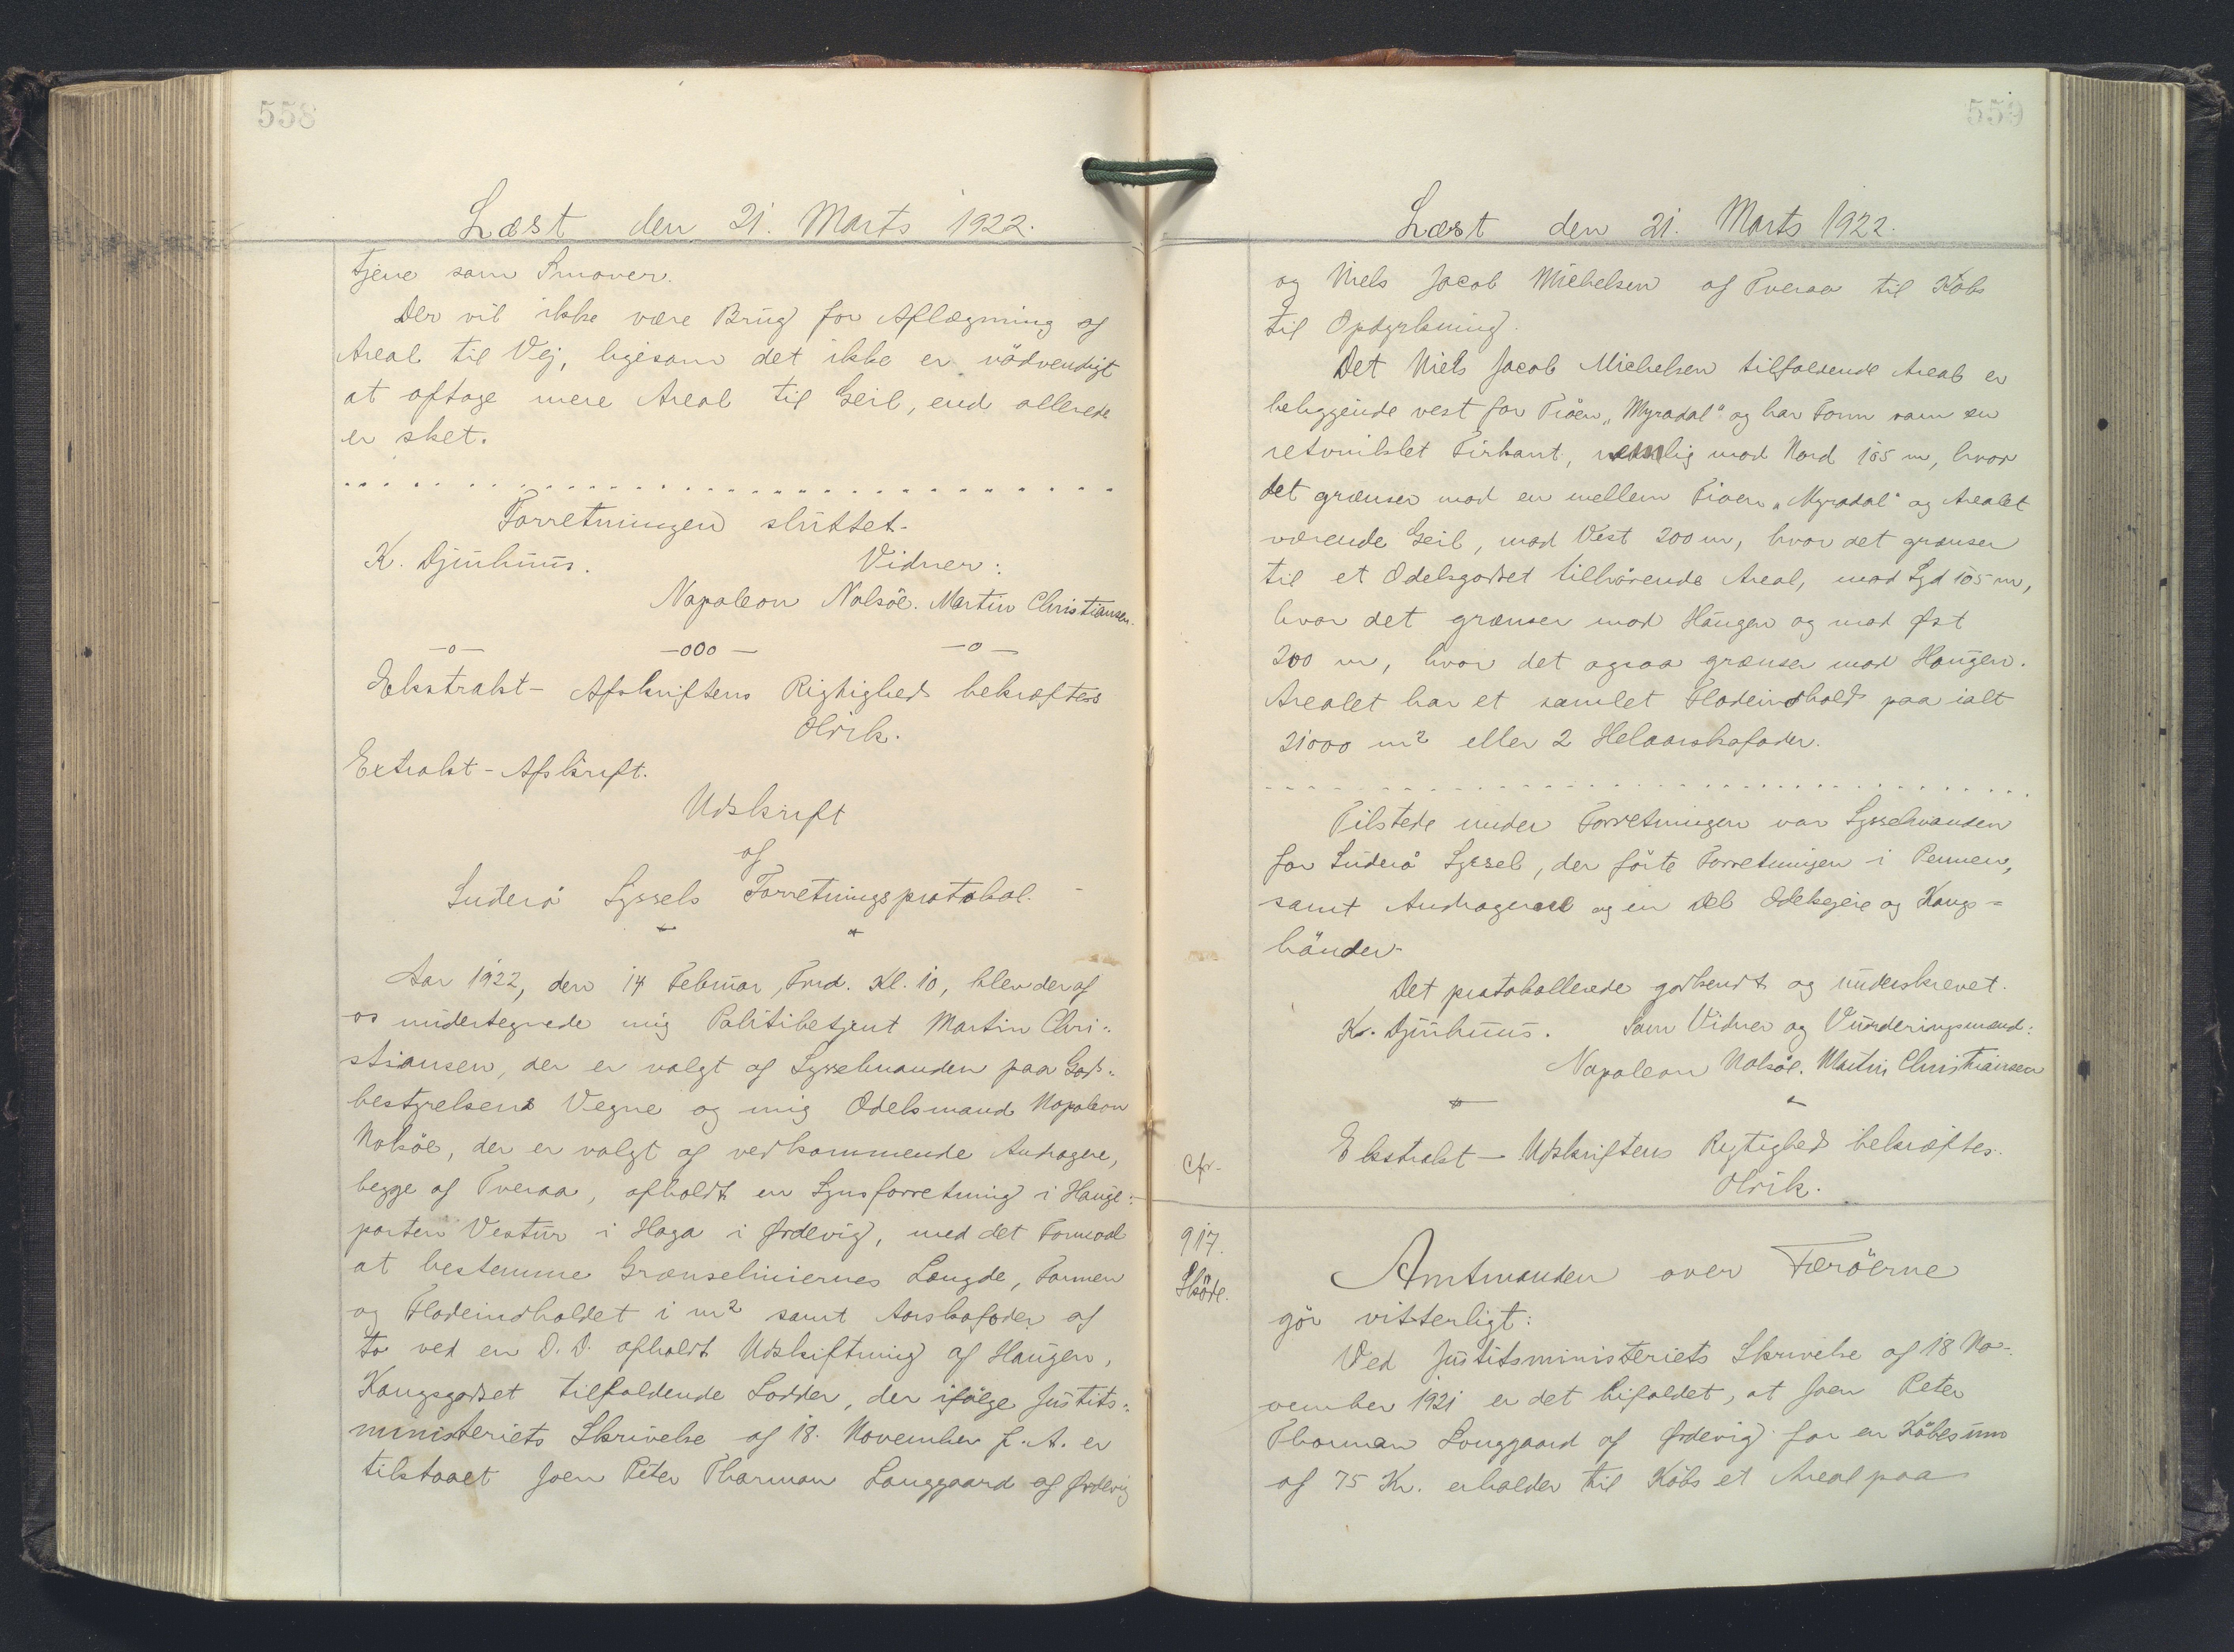 558
Læst den 21. Marts 1922.
tjene som Smover.
Der vil ikke være Brug for Aflægning af
Areal til Vej, ligesom det ikke er nödvendigt
at aftage mere Areal til Geil, end allerede
er sket.
Forretningen sluttet.
K. Djurhuus. Vidner:
Napoleon Nolsöe. Martin Christiansen.
—o— —ooo— —o—
Ekstrakt-Afskriftens Rigtighed bekræftes
Olrik.
Extrakt-Afskrift.
Udskrift
af
Suderö Syssels Forretningsprotokol.
Aar 1922, den 14 Februar, Fmd. Kl. 10, blev der af
os undertegnede mig Politibetjent Martin Chri-
stiansen, der er valgt af Sysselmanden paa Gods-
bestyrelsens Vegne og mig Odelsmand Napoleon
Nolsöe, der er valgt af vedkommende Andragere,
begge af Tveraa, afholdt en Synsforretning i Hauge-
parten Vestur i Haga i Ørdevig, med det Formaal
at bestemme Grænseliniernes Længde, Formen
og Fladeindholdet i m² samt Aarskofoder af
to ved en D. D. afholdt Udskiftning af Haugen,
Kongsgodset tilfaldende Lodder, der ifölge Justits-
ministeriets Skrivelse af 18. November f. A. er
tilstaaet Joen Peter Thorman Langgaard af Ørdevig
559
Læst den 21. Marts 1922.
og Niels Jacob Michelsen af Tveraa til Köbs
til Opdyrkning.
Det Niels Jacob Michelsen tilfaldende Areal er
beliggende vest for Tröen „Myradal" og har Form som en
retvinklet Firkant, nemlig mod Nord 105 m, hvor
det grænser mod en mellem Tröen „Myradal" og Arealet
værende Geil, mod Vest 200 m, hvor det grænser
til et Odelsgodset tilhörende Areal, mod Syd 105 m,
hvor det grænser mod Haugen og mod Øst
200 m, hvor det ogsaa grænser mod Haugen.
Arealet har et samlet Fladeindhold paa ialt
21000 m² eller 2 Helaarskofoder.
Tilstede under Forretningen var Sysselmanden
for Suderö Syssel, der förte Forretningen i Pennen,
samt Andragerne og en Del Odelsejere og Kongs-
bönder.
Det protokollerede godkendt og underskrevet.
K. Djurhuus. Som Vidner og Vurderingsmænd:
Napoleon Nolsöe. Martin Christiansen
Ekstrakt-Udskriftens Rigtighed bekræftes.
Olrik.
Cfr.
917.
Sköde.
Amtmanden over Færöerne
gör vitterligt:
Ved Justitsministeriets Skrivelse af 18 No-
vember 1921 er det bifaldet, at Joen Peter
Thorman Longgaard af Ørdevig for en Köbesum
af 75 Kr. erholder til Köbs et Areal paa